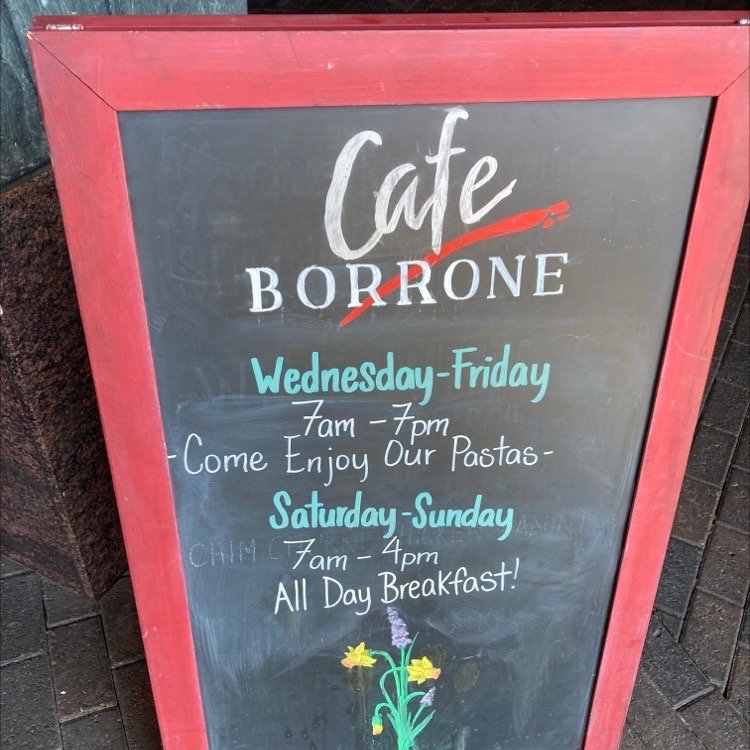 Cafe
BORRONE
Wednesday-Friday
7am - 7pm
-Come Enjoy Our Pastas-
Saturday-Sunday
7am - 4pm
All Day Breakfast!